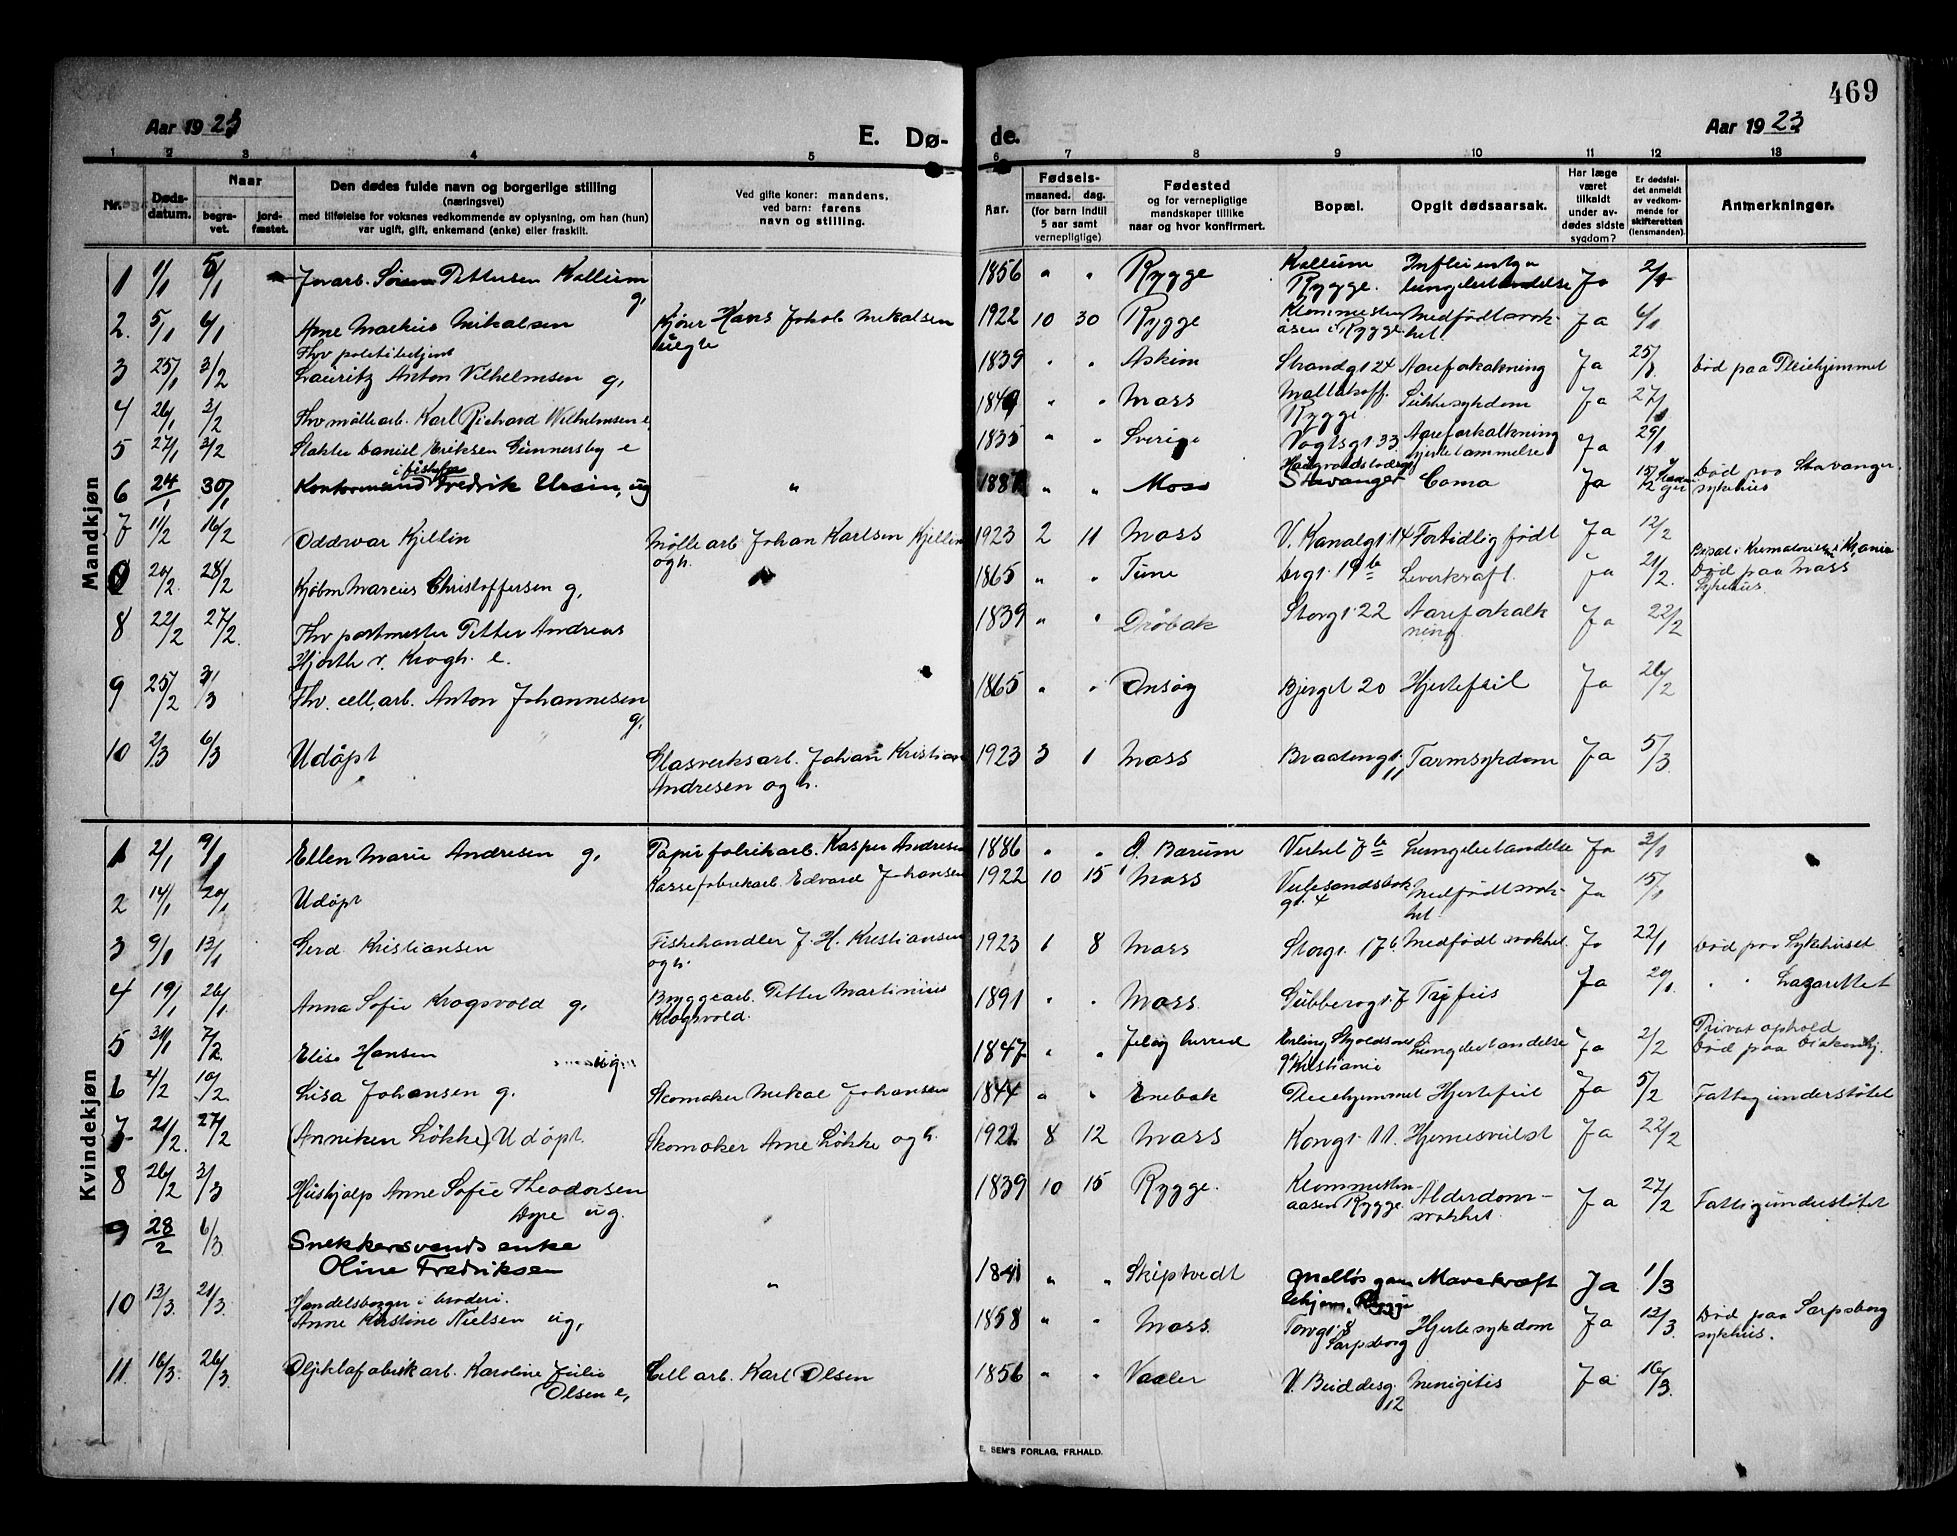 469
Aar 1923
E. Dø-
de.
Aar 1923
1 2 3 4 5 6 7 8 9 10 11 12 13
Nr.
Døds-
datum.
Naar
begra-
vet.
jord-
fæstet.
Den dødes fulde navn og borgerlige stilling
(næringsvei)
med tilføielse for voksnes vedkommende av oplysning, om han (hun)
var ugift, gift, enkemand (enke) eller fraskilt.
Ved gifte koner: mandens,
ved barn: farens
navn og stilling.
Aar.
Fødsels-
maaned. dag.
(for barn indtil
5 aar samt
vernepligtige)
Fødested
og for vernepligtige
mandskaper tillike
naar og hvor konfirmert.
Bopæl.
Opgit dødsaarsak.
Har læge
været
tilkaldt
under av-
dødes sidste
sygdom?
Er dødsfal-
det anmeldt
av vedkom-
mende for
skifteretten
(lensmanden).
Anmerkninger.
Mandkjøn
1 1/1 5/1 Jernarb. Søren Pettersen Kallum g, 1856 " " Rygge Kallum Rygge. Influentza lungebetændelse Ja 2/1
2. 5/1 6/1 Arne Markus Mikalsen Kjører Hans Jakob Mikalsen uegte 1922 10 30 Rygge Klommesten åsen i Rygge Medfødt svak- het. Ja 6/1
3 25/1 3/2 Fhv politibetjent Lauritz Anton Vilhelmsen g, 1839 " " Askim Strandgt 24 Aareforkalkning Ja 25/1 Død paa Pleiehjemmet
4 26/1 3/2 Fhv møllearb. Karl Richard Wilhelmsen e, " " Moss Rygge Sukkersykdom Ja 27/1
5 27/1 3/2 Slakter Daniel Eriksen Gunnersby e 1835 " " Sverige Vogtsgt 33 Aareforkalkning hjertelammelse Ja 29/1
6 24/1 30/1 Kontormand Fredrik Ursin, ug " 1887 " " Moss Stavanger Coma Ja 15/2 Død paa Stavanger sykehus
7 11/2 16/2 Oddvar Kjellin Møllearb Johan Karlsen Kjellin og h. 1923 2 11 Moss V. Kanalgt 14 Fortidlig født Ja 12/2
26/2 28/2 Kjøbm Marcus Christoffersen g, 1865 " " Tune Leverkræft. Ja 21/2. Død paa Moss Sykehus.
8 22/2 27/2. Fhv postmester Petter Andreas Hjorth v. Krogh. e. 1839 " " Drøbak Storgt 22 Aareforkalk ning. Ja 22/2
9 25/2 3/3 Fhv. cell, arb. Anton Johannesen g, 1865 " " Onsøy Bjerget 20 Hjertefeil Ja 26/2
10 2/3 6/3 Udöpt Glasverksarb. Johan Kristian Andresen og h. 1923 3 1 Moss Braatengt. 11 Tarmsykdom Ja 5/3
Kvindekjøn
1 2/1 9/1 Ellen Marie Andresen g, Papirfabrikarb. Kasper Andresen 1886 " " Ø. Bærum Verket 7b Lungebetændelse Ja 3/1
2 14/1 20/1 Udöpt Kassefabrikarb. Edvard Johansen 1922 10 15 Moss Værlesandsbak gt. 4 Medfødt svak- het. Ja 15/1
3 9/1 13/1 Gerd Kristiansen Fiskehandler J. H. Kristiansen og h. 1923 1 8 Moss Storgt 17b Medfødt svakhet Ja 22/1 Død paa Sykehuset
4 19/1 26/1. Anna Sofie Krogsvold g, Bryggearb. Petter Martinius Krogsvold. 1891 " " Moss. Gubberogt. 7 Tyfus Ja 20/1. " " Lazarettet
5 31/1 7/2. Elise Hansen ug. 1847 " " Jeløy herred Erling Skjalgsons gt Kristiania Lungebetændelse Ja 2/2 Privat ophold Død paa Diakonhj.
6 4/2 10/2. Lisa Johansen g. Skomaker Mikal Johansen 1844 " " Enebak Pleiehjemmet Hjertefeil Ja 5/2 Fattigunderstøttet
7 21/2. 27/2 (Anneken Løkke) Udöpt. Skomaker Arne Løkke og h. 1922 8 12 Moss Kongt. 11. Hjernesvulst Ja 22/2
8 26/2 3/3 Hushjælp Anne Sofie Theodorsen Dype ug. " 1839 10 15 Rygge. Klommesten- aasen Rygge Alderdoms- svakhet. Ja 27/2 Fattigunderstøttet
9 28/2 6/3 Snekkersvends enke Oline Fredriksen " 1841 " " Skiptvedt Gamlehjem, Rygge Mavekræft Ja 1/3
10 13/3. 21/3. Handelsborger i broderi. Anne Kirstine Nielsen ug, 1858 " " Moss. Torvgt. 8 Sarpsborg Hjertesykdom Ja 13/3. Død paa Sarpsborg sykhus.
11. 16/3. 26/3. Oljeklafabrikarb. Karoline Julie Olsen e, Cell arb. Karl Olsen 1856 " " Vaaler 12 Menigitis Ja 16/3.
E. SEM'S FORLAG, FR.HALD.